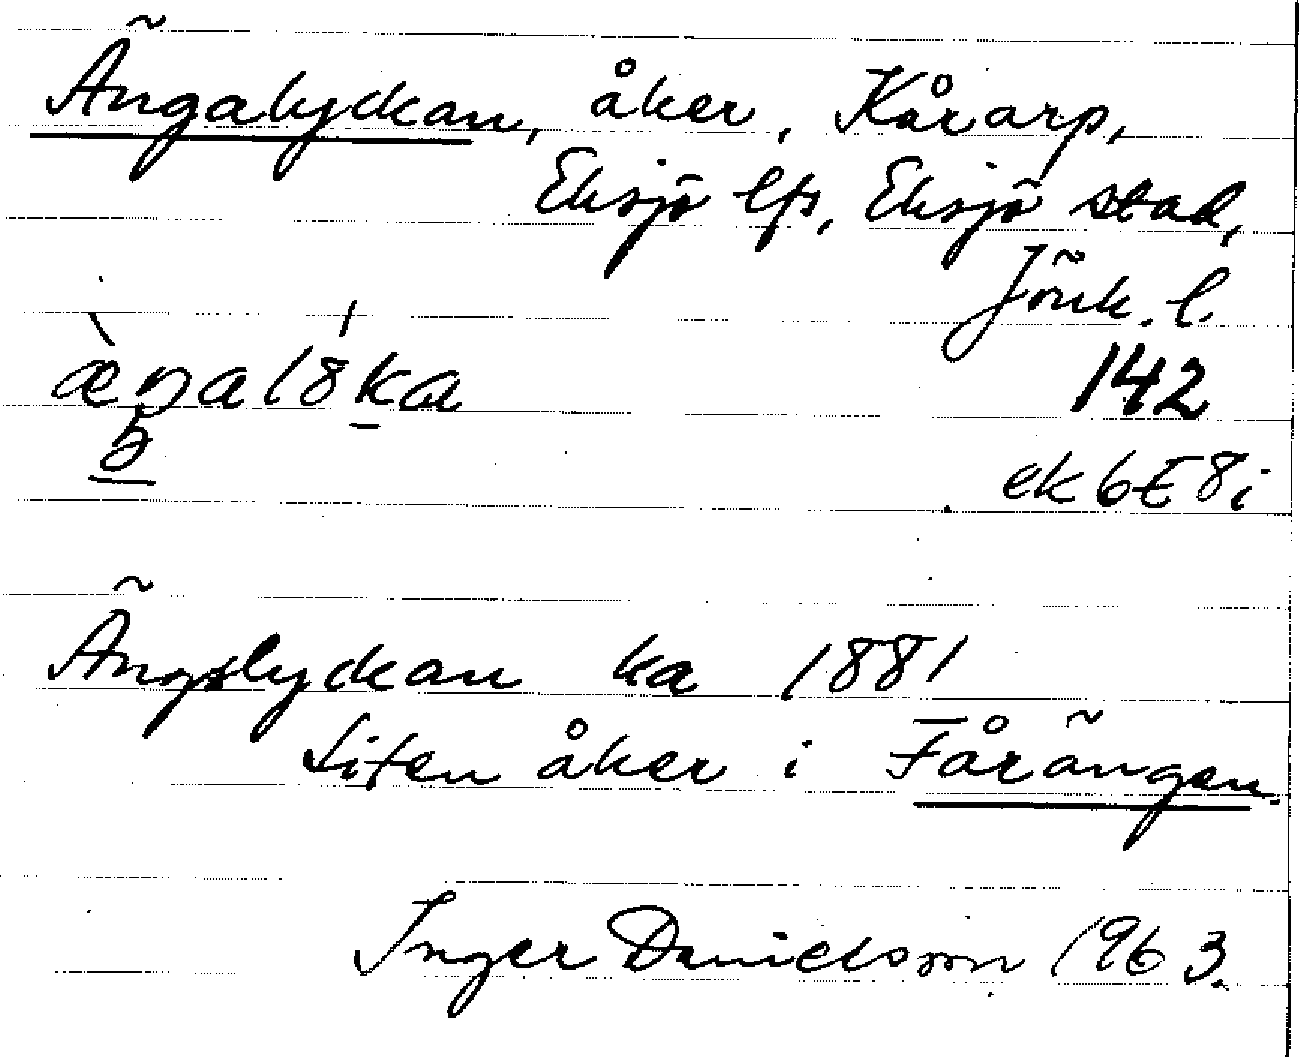 Ängalyckan, åker, Kårarp,
Eksjö lfs, Eksjö stad,
Jönk. l.
142
ek 6E8i
Ängslyckan ka 1881
Liten åker i Fårängen.
Inger Danielsson 1963.